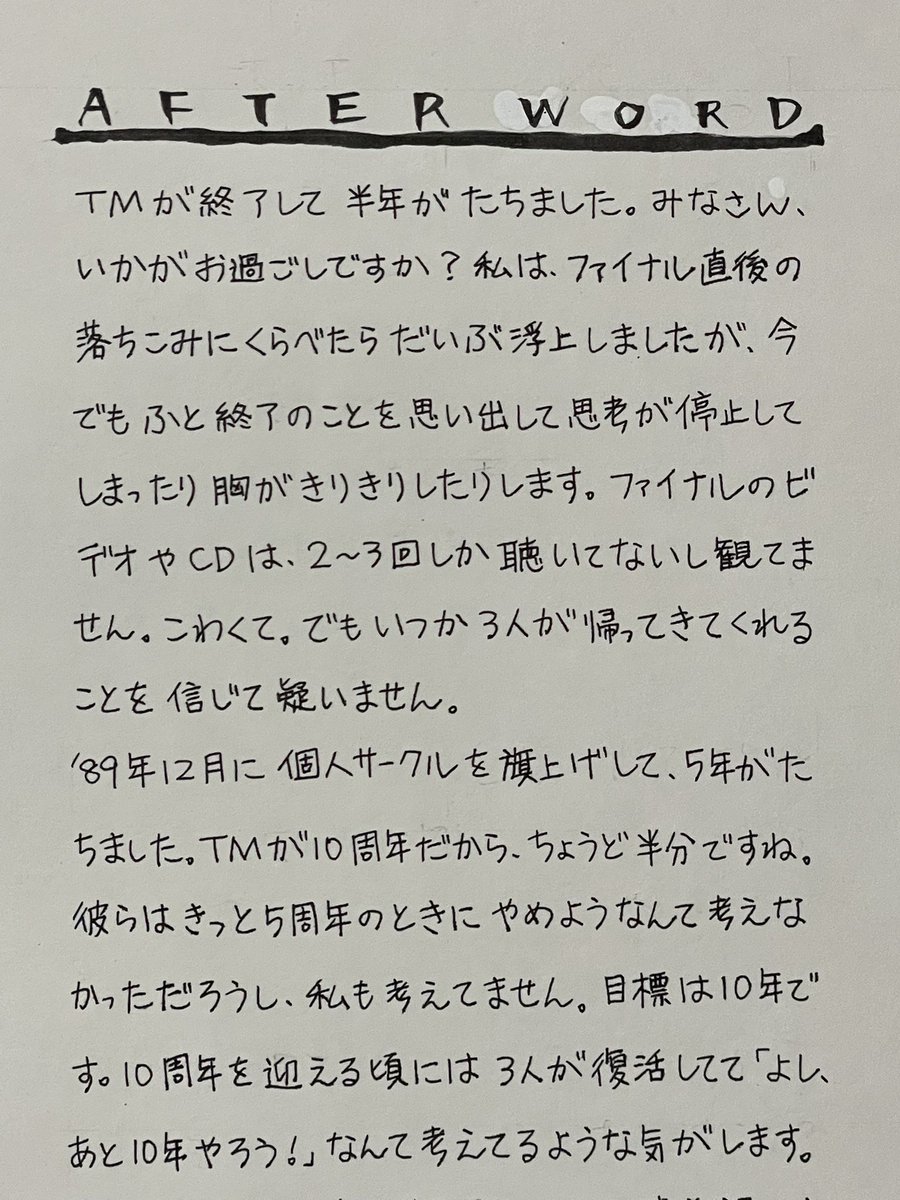 AFTER WORD
TMが終了して 半年が たちました。みなさん、
いかがお過ごしですか？私は、ファイナル直後の
落ちこみにくらべたら だいぶ浮上しましたが、今
でも ふと終了のことを思い出して思考が停止して
しまったり 胸がきりきりしたりします。ファイナルのビ
デオやCDは、2〜3回しか聴いてないし観てま
せん。こわくて。でもいつか3人が帰ってきてくれる
ことを信じて疑いません。
'89年12月に個人サークルを旗上げして、5年がた
ちました。TMが10周年だから、ちょうど半分ですね。
彼らはきっと5周年のときに やめようなんて考えな
かっただろうし、私も考えてません。目標は10年で
す。10周年を迎える頃には 3人が復活してて「よし、
あと10年やろう!」なんて考えてるような気がします。